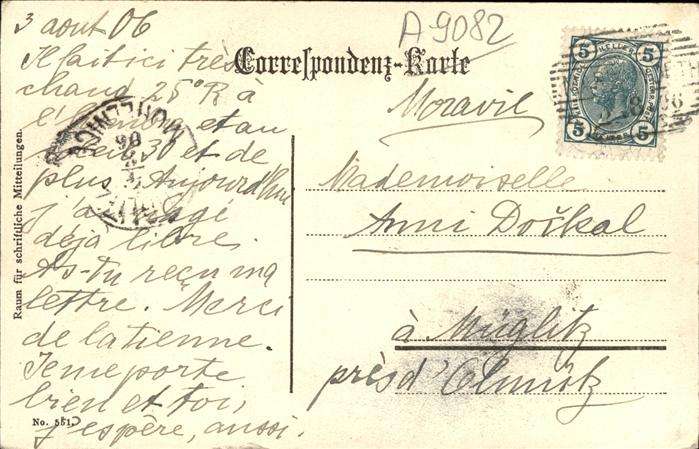 3 août 06
Il fait ici très
chaud 25°R à
l'ombre et au
soleil 30 et de
plus. Aujourd'hui
j'ai
déjà libre.
As-tu reçu ma
lettre. Merci
de la tienne.
Je me porte
bien et toi,
j'espère, aussi.
No. 551
Raum für schriftliche Mitteilungen.
A 9082
Correspondenz-Karte
Moravie
Mademoiselle
Anni Doškal
à Müglitz
près d'Olmütz
5 5
5 5
MOHELNICE